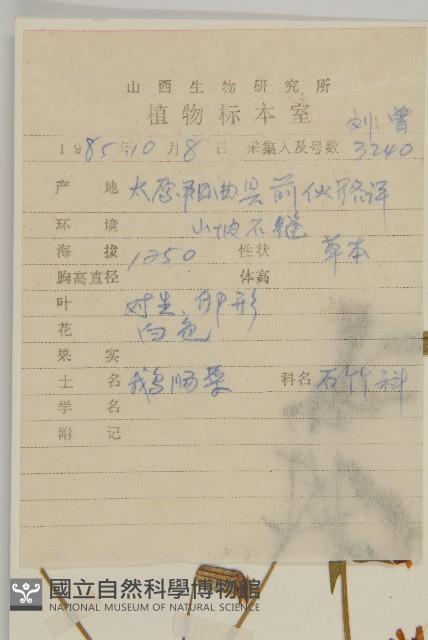 山西生物研究所
植物标本室
刘、曾
1985年10月8日 采集人及号数 3240
产地 太原阳曲县前伙路洋
环境 山坡石缝
海拔 1250 性状 草本
胸高直径 体高
叶 对生、卵形
花 白色
果实
土名 鹅肠菜 科名 石竹科
学名
附记
國立自然科學博物館
NATIONAL MUSEUM OF NATURAL SCIENCE